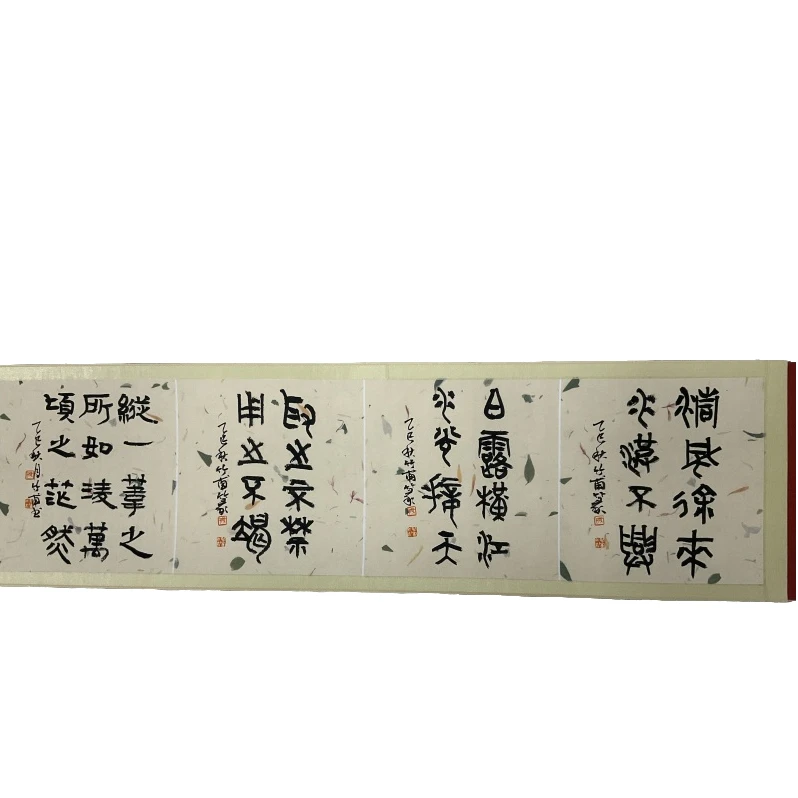 清風徐來
水波不興
乙巳秋竹甫篆
白露橫江
水光接天
乙巳秋竹甫篆
取之无禁
用之不竭
乙巳秋竹甫篆
縱一葦之
所如淩萬
頃之茫然
乙巳秋月竹甫書